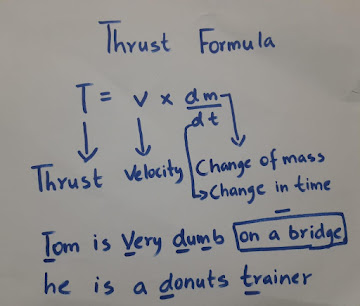 Thrust Formula
T = v × dm/dt
Thrust Velocity Change of mass
Change in time
Tom is Very dumb on a bridge
he is a donuts trainer